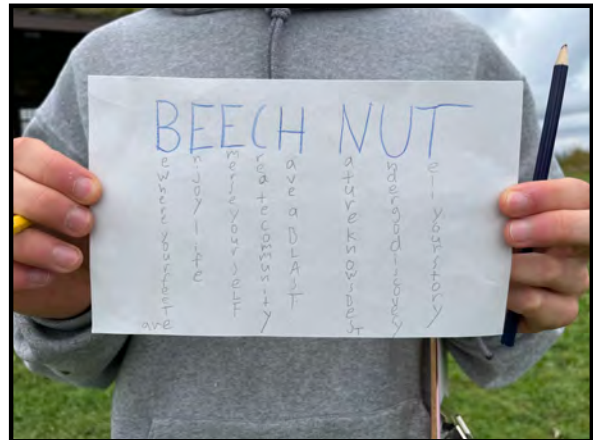 BEECH NUT
ewhere yourfeeTare
njoylife
merseyourselF
reatecomunity
ave a BLAST
atureknowsBesT
ndergodiscovery
ell yourstory